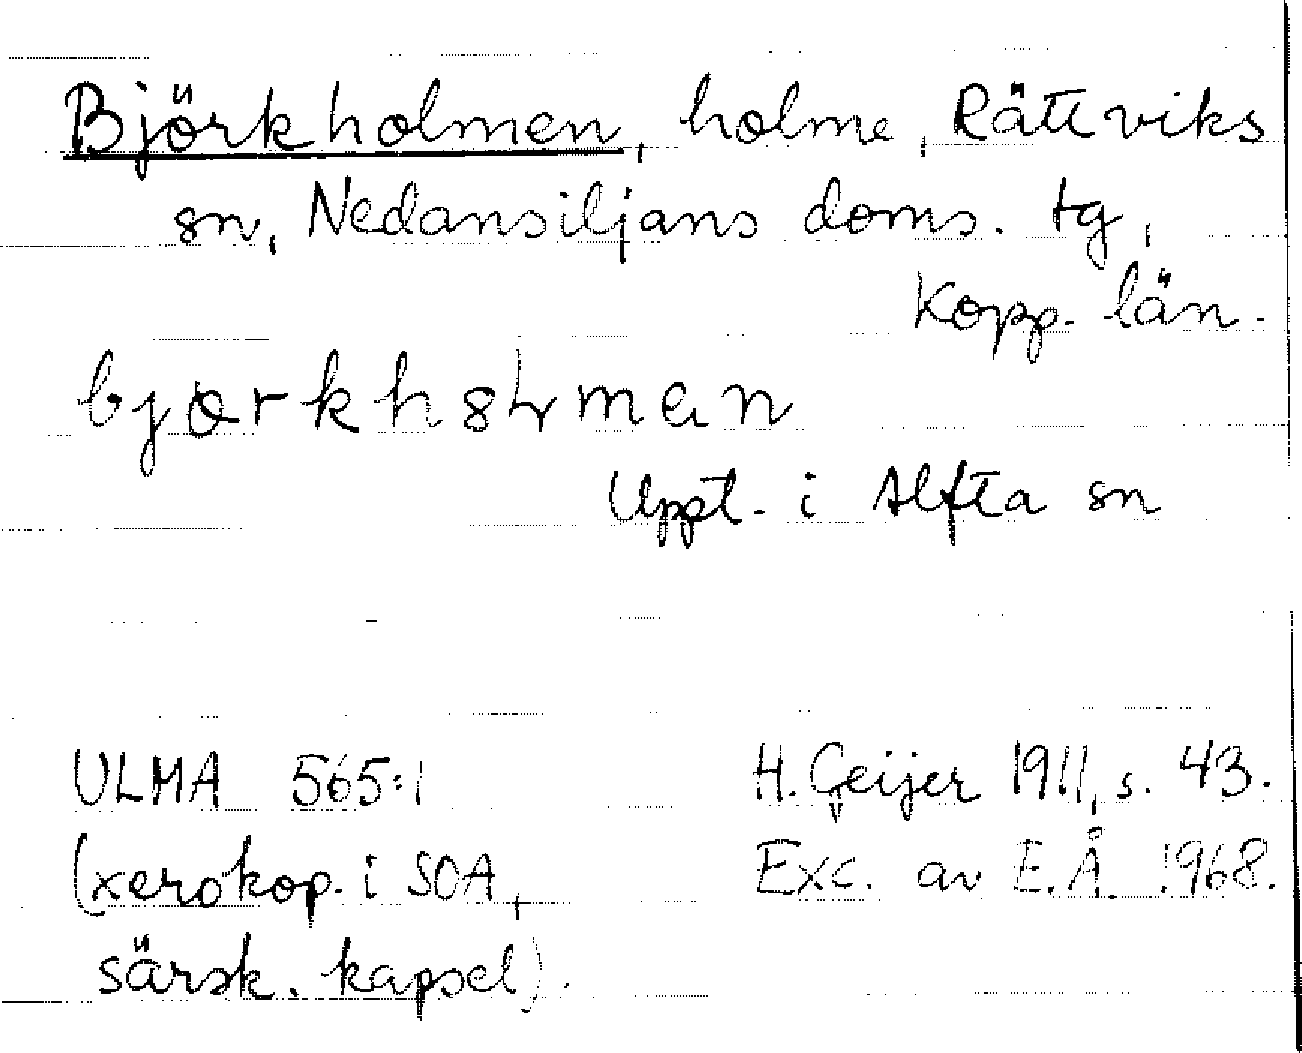 Björkholmen, holme, Rättviks
sn, Nedansiljans doms. tg,
Kopp. län.
Uppt. i Alfta sn
ULMA 565:1
H. Geijer 1911, s. 43.
(xerokop. i SOA,
Exc. av E.Å. 1968.
särsk. kapsel).